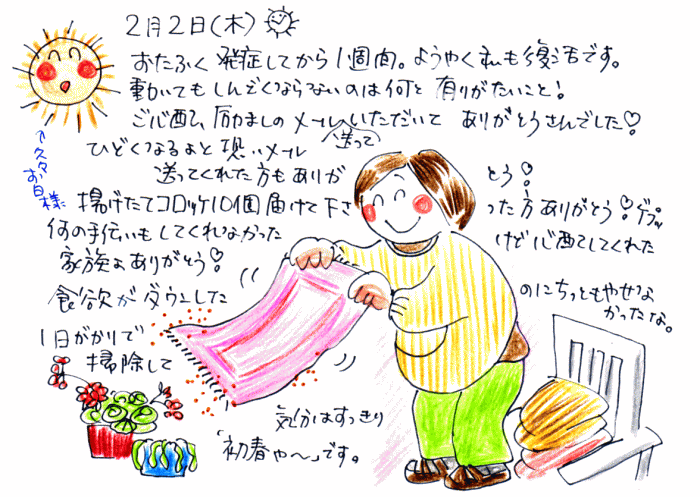 2月2日(木)
おたふく 発症してから1週間。ようやく私も復活です。
動いてもしんどくならないのは何と 有りがたいこと!
ご心配、励ましのメールいただいて ありがとうさんでした♡
ひどくなるよと 恐いメール 送って
送ってくれた方もありが とう!
揚げたてコロッケ10個届けて下さ った方ありがとう♡ゲプッ
何の手伝いもしてくれなかった けど心配してくれた
家族よありがとう♡
食欲がダウンした のにちっともやせな
かったな。
1日がかりで
掃除して
気分はすっきり
「初春や〜」です。
久々
お日様